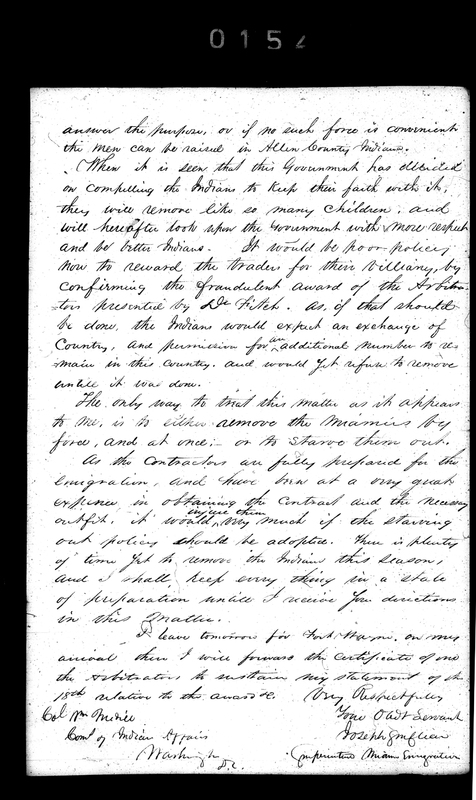 0152
answer the purpose, or if no such force is convenient
the men can be raised in Allen County Indiana.
When it is seen that this Government has decided
on compelling the Indians to keep their faith with it,
they will remove like so many children, and
will hereafter look upon the Government with more respect
and be better Indians. It would be poor policy
now to reward the traders for their villiany, by
confirming the fraudulent award of the Arbitra-
-tors presented by Dr Fitch. as, if that should
be done, the Indians would expect an exchange of
Country, and permission for an additional number to re-
-main in this country. and would yet refuse to remove
untill it was done.
The only way to treat this matter as it appears
to me, is to either remove the Miamies by
force, and at once; or to starve them out.
As the Contractors are fully prepared for the
Emigration, and have been at a very great
expence in obtaining the Contract and the necessary
outfit, it would injure them very much if the starving
out policy should be adopted. There is plenty
of time yet to remove the Indians this season,
and I shall keep every thing in a state
of preparation untill I receive your directions
in this matter.
I leave tomorrow for Fort Wayne. on my
arrival there I will forward the certificate of one
the Arbitrators to sustain my statement of the
18th relative to the award &c. Very Respectfully
Col Wm Medill Your Obdt Servant
Coms of Indian Affairs Joseph Sinclear
Washington DC. Superintend Miami Emigration